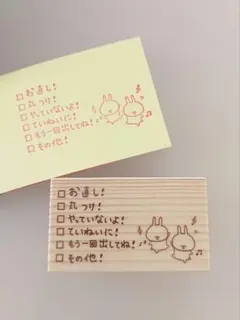 □お直し!
□丸つけ!
□やっていないよ!
□ていねいに!
□もう一回出してね!
□その他!
□お直し!
□丸つけ!
□やっていないよ!
□ていねいに!
□もう一回出してね!
□その他!